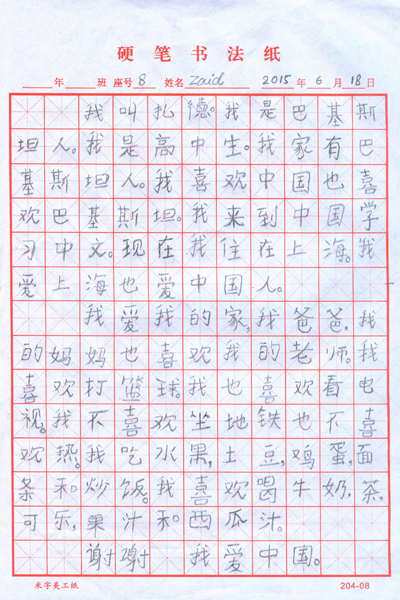 硬笔书法纸
年 班 座号 8 姓名 Zaid 2015 年 6 月 18 日
我叫扎德。我是巴基斯
坦人。我是高中生。我家有巴
基斯坦人。我喜欢中国也喜
欢巴基斯坦。我来到中国学
习中文。现在我住在上海。我
爱上海也爱中国人。
我爱我的家,我爸爸,我
的妈妈也喜欢我的老师。我
喜欢打篮球。我也喜欢看电
视。我不喜欢坐地铁也不喜
欢热。我吃水果,土豆,鸡蛋,面
条和炒饭。我喜欢喝牛奶,茶,
可乐,果汁和西瓜汁。
谢谢 我爱中国。
米字美工纸 204-08